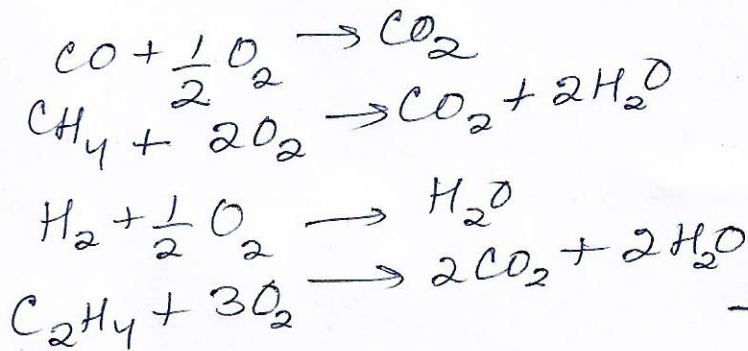 CO + 1/2 O₂ → CO₂
CH₄ + 2O₂ → CO₂ + 2H₂O
H₂ + 1/2 O₂ → H₂O
C₂H₄ + 3O₂ → 2CO₂ + 2H₂O